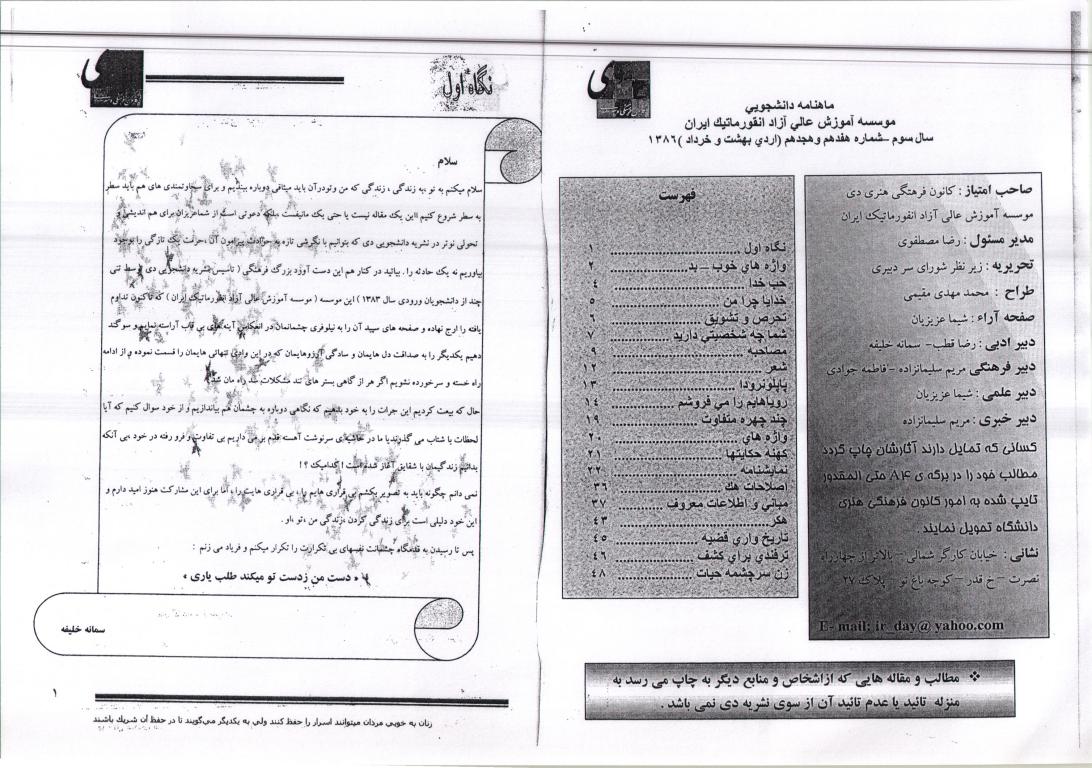 ماهنامه دانشجويي
موسسه آموزش عالي آزاد انفورماتيك ايران
سال سوم –شماره هفدهم وهجدهم (اردي بهشت و خرداد )١٣٨٦
صاحب امتیاز : کانون فرهنگی هنری دی
موسسه آموزش عالی آزاد انفورماتیک ایران
مدیر مسئول : رضا مصطفوی
تحریریه : زیر نظر شورای سر دبیری
طراح : محمد مهدی مقیمی
صفحه آراء : شیما عزیزیان
دبیر ادبی : رضا قطب– سمانه خلیفه
دبیر فرهنگی مریم سلیمانزاده –فاطمه جوادی
دبیر علمی : شیما عزیزیان
دبیر خبری : مریم سلیمانزاده
کسانی که تمایل دارند آثارشان چاپ گردد
مطالب خود را در برگه ی A۴ حتی المقدور
تایپ شده به امور کانون فرهنگی هنری
دانشگاه تحویل نمایند .
نشانی : خیابان کارگر شمالی – بالاتر از چهارراه
نصرت – خ قدر – کوچه باغ نو – پلاک ۲۷
E- mail: ir_day@ yahoo.com
فهرست
نگاه اول ........ ١
واژه هاي خوب – بد........ ٢
حب خدا ........ ٤
خدايا چرا من ........ ٥
تحرص و تشويق ........ ٦
شما چه شخصيتي داريد ........ ٧
مصاحبه ........ ٩
شعر ........ ١٢
پابلونرودا ........ ١٣
روياهايم را مي فروشم ........ ١٤
چند چهره متفاوت ........ ١٩
واژه هاي ........ ٢٠
كهنه حكايتها ........ ٢١
نمايشنامه ........ ٢٢
اصلاحات هك ........ ٣٦
مباني و اطلاعات معروف ........ ٣٧
هكر........ ٤٣
تاريخ واري قضيه ........ ٤٥
ترفندي براي كشف ........ ٤٦
زن سرچشمه حيات ........ ٤٨
❖ مطالب و مقاله هایی که ازاشخاص و منابع دیگر به چاپ می رسد به
منزله تائید یا عدم تائید آن از سوی نشریه دی نمی باشد .
نگاه اول
سلام
سلام میکنم به تو ،به زندگی ، زندگی که من وتودرآن باید میثاقی دوباره ببندیم و برای سخاوتمندی های هم باید سطر
به سطر شروع کنیم !این یک مقاله نیست یا حتی یک مانیفست بلکه دعوتی است از شماعزیزان برای هم اندیشی و
تحولی نوتر در نشریه دانشجویی دی که بتوانیم با نگرشی تازه به حوادث پیرامون آن ،حرکت یک تازگی را بوجود
بیاوریم نه یک حادثه را . بیائید در کنار هم این دست آورد بزرگ فرهنگی ( تاسیس نشریه دانشجویی دی توسط تنی
چند از دانشجویان ورودی سال ۱۳۸۳ ) این موسسه ( موسسه آموزش عالی آزاد انفورماتیک ایران ) که تاکنون تداوم
یافته را اوج نهاده و صفحه های سپید آن را به نیلوفری چشمانمان در انعکاس آینه های بی قاب آراسته نماییم و سوگند
دهیم یکدیگر را به صداقت دل هایمان و سادگی آرزوهایمان که در این وادی تنهائی هایمان را قسمت نموده و از ادامه
راه خسته و سرخورده نشویم اگر هر از گاهی بستر های تند مشکلات سد راه مان شد .
حال که بیعت کردیم این جرات را به خود بدهیم که نگاهی دوباره به چشمان هم بیاندازیم و از خود سوال کنیم که آیا
لحظات با شتاب می گذرندیا ما در حاشیه ی سرنوشت آهسته قدم بر می داریم بی تفاوت و فرو رفته در خود ،بی آنکه
بدانیم زندگیمان با شقایق آغاز شده است ! کدامیک ؟!
نمی دانم چگونه باید به تصویر بکشم بی قراری هایم را ، بی قراری هایت را ، اما برای این مشارکت هنوز امید دارم و
این خود دلیلی است برای زندگی کردن ،زندگی من ،تو ،او .
پس تا رسیدن به قدمگاه چشمانت نفسهای بی تکرارت را تکرار میکنم و فریاد می زنم :
« دست من زدست تو میکند طلب یاری »
سمانه خلیفه
١
زنان به خوبی مردان میتوانند اسرار را حفظ کنند ولی به یکدیگر می‌گویند تا در حفظ آن شریک باشند